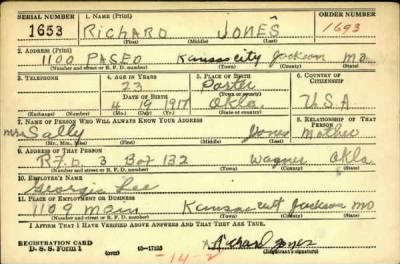 SERIAL NUMBER 1. NAME (Print) ORDER NUMBER
1653 RICHARD JONES 1693
(First) (Middle) (Last)
2. ADDRESS (Print)
1100 PASEO Kansas City Jackson Mo.
(Number and street or R. F. D. number) (Town) (County) (State)
3. TELEPHONE 4. AGE IN YEARS 5. PLACE OF BIRTH 6. COUNTRY OF CITIZENSHIP
23 Porter
DATE OF BIRTH (Town or county)
4 19 1917 Okla. U.S.A
(Exchange) (Number) (Mo.) (Day) (Yr.) (State or country)
7. NAME OF PERSON WHO WILL ALWAYS KNOW YOUR ADDRESS 8. RELATIONSHIP OF THAT PERSON
Mrs Sally Jones Mother
(Mr., Mrs., Miss) (First) (Middle) (Last)
9. ADDRESS OF THAT PERSON
R.F.D. 3 Box 132 Wagner Okla
(Number and street or R. F. D. number) (Town) (County) (State)
10. EMPLOYER'S NAME
Georgia Lee
11. PLACE OF EMPLOYMENT OR BUSINESS
1109 Main Kansas City Jackson MO
(Number and street or R. F. D. number) (Town) (County) (State)
I AFFIRM THAT I HAVE VERIFIED ABOVE ANSWERS AND THAT THEY ARE TRUE.
REGISTRATION CARD
D. S. S. Form 1 Richard Jones
-14-2 (Registrant's signature)